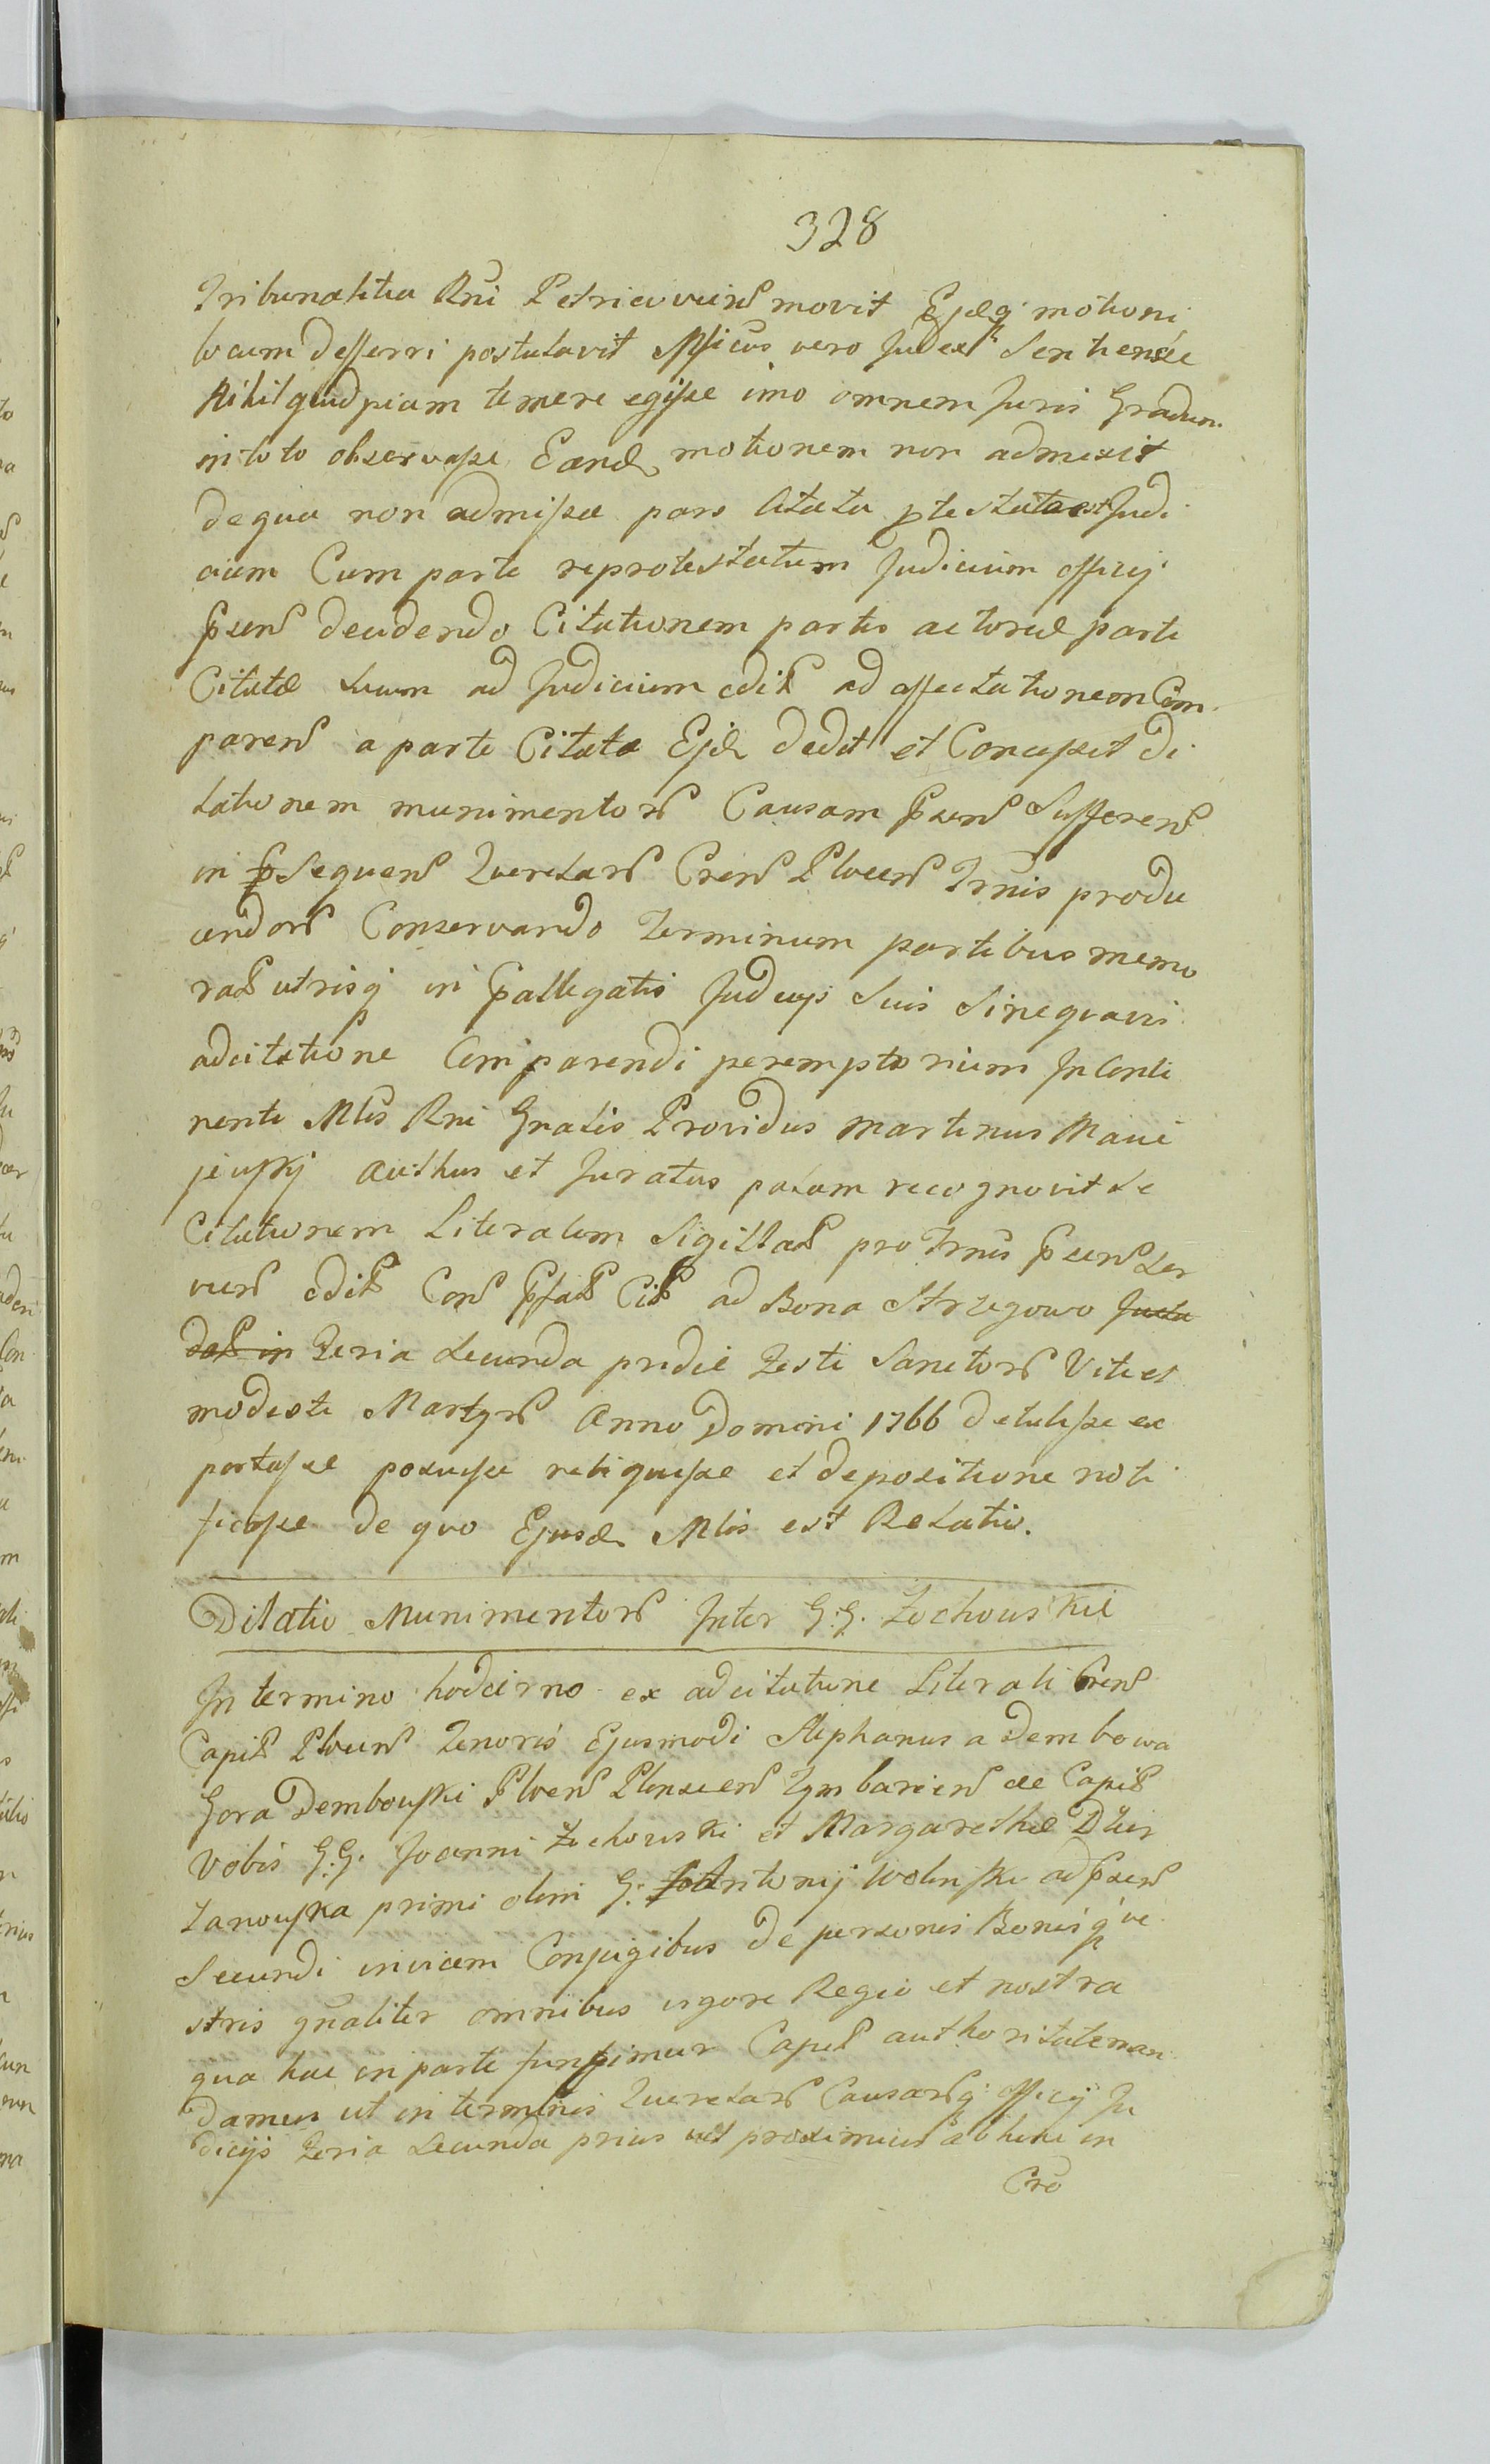 328
Tribunalitia Rni Petricovien movit Ejdq motioni
locum defferri postulavit Mficus vero Judex Sentiens se
Nihil quidpiam temere egisse imo omnem Juris Gradum
in toto observasse Eand motionem non admisit
de qua non admissa pars Citata ptestata est Judi
cium Cum parte reprotestatum Judicium officij
psens decidendo Citationem partis actoreæ parti
Citatæ suum ad Judicium edit ad affectationem Com
paren a parte Citata Ejd dedit et Concessit di
lationem munimentor Causam psen Sufferen
in psequen Querelar Cren Plocen Trmis produ
cendor Conservando Terminum partibus memo
rat utrisq in pallegatis Judicijs Suis Sine quavis
adcitatione Comparendi peremptorium In Conti
nenti Mlis Rni Gnalis Providus Martinus Maci
jewskj authus et Juratus palam recognovit se
Citationem Literalem Sigillat pro Trmis psen ser
vien edit Con pfat Cit ad Bona Strzegowo Juxta
dat in Feria Secunda pridie Festi Sanctor Viti et
modesti Martyr Anno Domini 1766 detulisse ex
portasse posuisse reliquisse et depositione noti
ficasse de quo Ejusd Mlis est Relatio.
Dilatio Munimentor Inter G:G. Zochowskie
In termino hodierno ex adcitatione Literali Cren
Capit Plocen Tenoris Ejusmodi Stephanus a Dembowa
Gora Dembowski Plocen Plonscen Tymbarcien &c Capit
Vobis G:G. Joanni Zochowski et Margarethæ Dłu
zanowska primi olim G. Antonij Wolinski ad psen
Secundi invicem Conjugibus de personis Bonisq ve
stris gnaliter omnibus vigore Regio et nostra
qua hac in parte fungimur Capit authoritate man
damus ut in terminis Querelar Causarq officij Ju
dicijs Feria Secunda prius vel proximius abhinc in
Cro